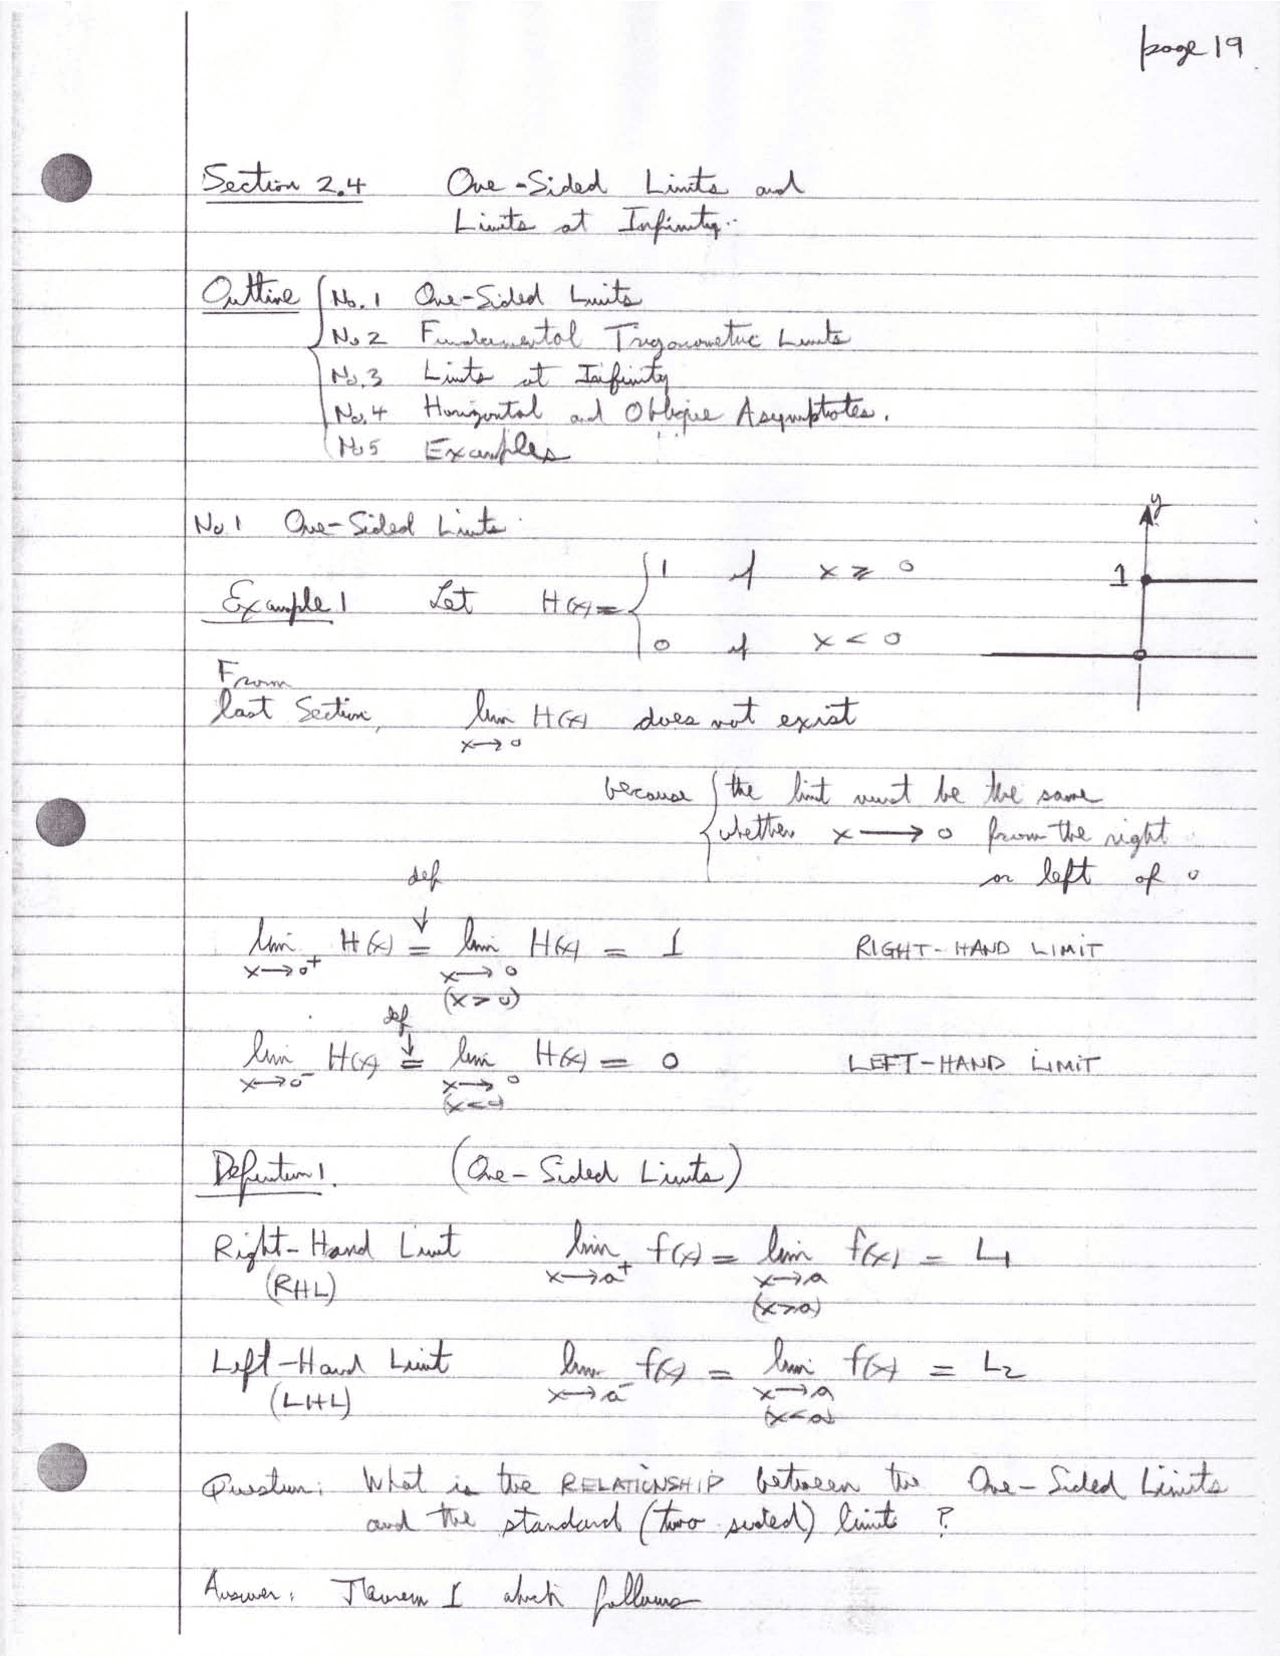 page 19
Section 2.4 One-Sided Limits and
Limits at Infinity.
Outline No. 1 One-Sided Limits
No 2 Fundamental Trigonometric Limits
No. 3 Limits at Infinity
No. 4 Horizontal and Oblique Asymptotes.
No 5 Examples
No 1 One-Sided Limits
y
1
Example 1 Let H(x) = { 1 if x ≥ 0
0 if x < 0
From
last Section, lim x→0 H(x) does not exist
because { the limit must be the same
whether x → 0 from the right
or left of 0
def
↓
lim x→0⁺ H(x) = lim x→0 (x>0) H(x) = 1 RIGHT-HAND LIMIT
def
↓
lim x→0⁻ H(x) = lim x→0 (x<0) H(x) = 0 LEFT-HAND LIMIT
Definition 1. (One-Sided Limits)
Right-Hand Limit lim x→a⁺ f(x) = lim x→a (x>a) f(x) = L₁
(RHL)
Left-Hand Limit lim x→a⁻ f(x) = lim x→a (x<a) f(x) = L₂
(LHL)
Question: What is the RELATIONSHIP between the One-Sided Limits
and the standard (two sided) limit ?
Answer: Theorem 1 which follows